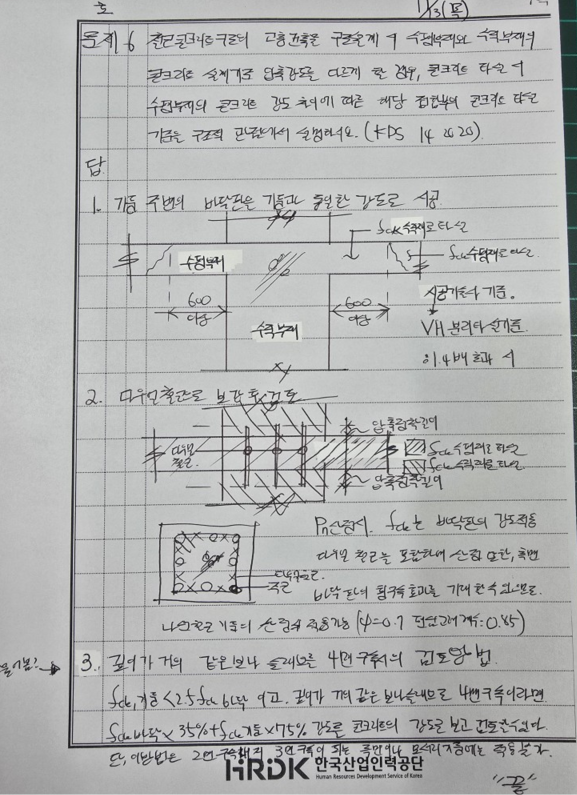 11/13(목)
문제 6 철근콘크리트구조의 고층건축물 구조설계 시 수평부재와 수직부재의
콘크리트 설계기준 압축강도를 다르게 한 경우, 콘크리트 타설 시
수평부재의 콘크리트 강도 차이에 따른 해당 접합부의 콘크리트 타설
기준을 구조적 관점에서 설명하시오. (KDS 14 20 20)
답
1. 기둥 주변의 바닥판은 기둥과 동일한 강도로 시공.
fck 수직재로 타설
수평부재
fck 수평재로 타설
600
이상
600
이상
수직부재
시공기준
VH 분리타설기준
1.4배 초과 시
2. 다우얼철근로 보강 후 검토
압축정착길이
다우얼
철근
fck 수평재로 타설
fck 수직재로 타설
압축정착길이
Pn산정시, fck는 바닥판의 강도적용
다우얼 철근을 포함하여 산정
다우얼철근
주근
바닥판의 횡구속효과를 기대할 수 있으므로
나선철근 기둥의 산정식 적용가능 (φ=0.7 편심고려계수: 0.85)
3. 깊이가 거의 같은 보나 슬래브로 4면 구속시의 검토방법
fck,기둥 < 2.5fck 바닥 이고, 깊이가 거의 같은 보나 슬래브로 4면구속이라면
fck바닥 × 35% + fck기둥 × 75% 강도를 콘크리트의 강도로 보고 검토할 수 있다.
단, 이방법은 2면 구속이나 3면 구속이 되는 측면이나 모서리기둥에는 적용불가.
HRDK 한국산업인력공단
Human Resources Development Service of Korea
"끝"